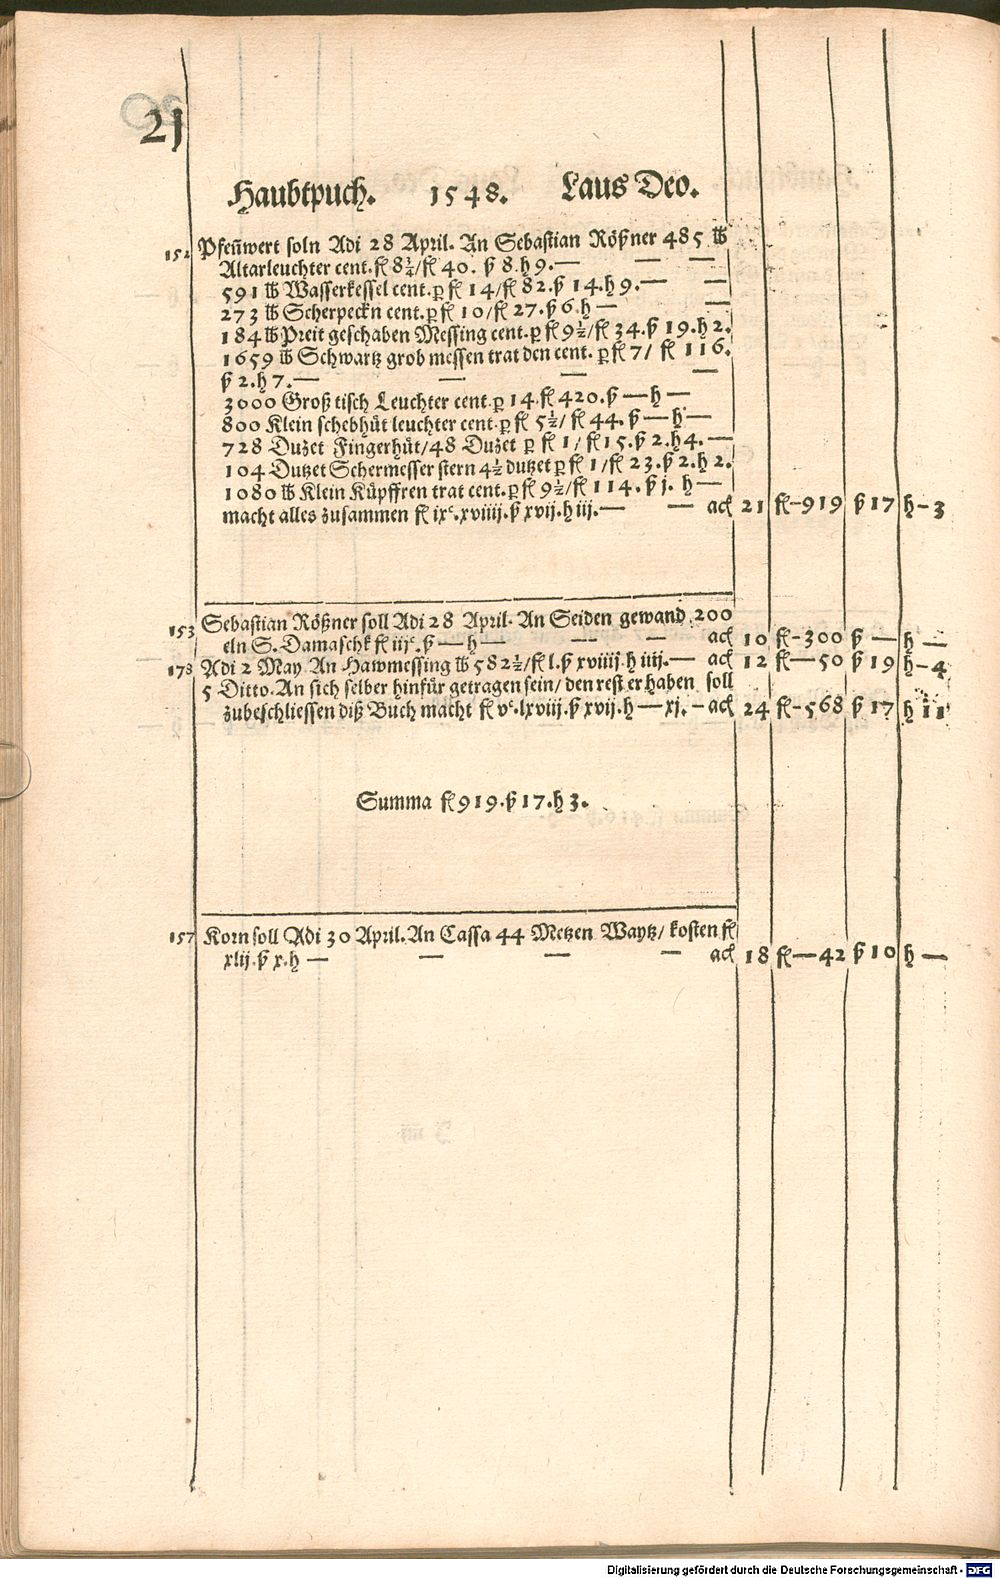 21
Haubtpuch. 1548. Laus Deo.
152 Pfeñwert soln Adi 28 April. An Sebastian Rößner 485 ℔
Altarleuchter cent. fl 8¼/fl 40. ß 8. h 9.— — —
591 ℔ Wasserkessel cent. ꝑ fl 14/fl 82. ß 14. h 9.— —
273 ℔ Scherpeckn cent. ꝑ fl 10/fl 27. ß 6 h — —
184 ℔ Preit geschaben Messing cent. ꝑ fl 9½/fl 34. ß 19. h 2.
1659 ℔ Schwartz grob messen trat den cent. ꝑ fl 7/ fl 116.
ß 2. h 7.— — — —
3000 Groß tisch Leuchter cent ꝑ 14. fl 420. ß — h —
800 Klein schebhüt leuchter cent. ꝑ fl 5½/ fl 44. ß — h —
728 Duzet Fingerhüt/48 Duzet ꝑ fl 1/ fl 15. ß 2. h 4. —
104 Dutzet Schermesser stern 4½ dutzet ꝑ fl 1/fl 23. ß 2. h 2.
1080 ℔ Klein Küpffren trat cent. ꝑ fl 9½/fl 114. ß j. h —
macht alles zusammen fl ixᶜ.xviiij. ß xvij. h iij.— — ad 21 fl–919 ß 17 h–3
153 Sebastian Rößner soll Adi 28 April. An Seiden gewand 200
eln S. Damaschk fl iijᶜ. ß — h — — — ad 10 fl–300 ß — h —
178 Adi 2 May An Hawmessing ℔ 582½/fl l. ß xviiij h iiij.— ad 12 fl—50 ß 19 h–4
5 Ditto. An sich selber hinfür getragen sein/ den rest er haben soll
zubeschliessen diß Buch macht fl vᶜ.lxviij. ß xvij. h — xj. – ad 24 fl–568 ß 17 h 11
Summa fl 919. ß 17. h 3.
157 Korn soll Adi 30 April. An Cassa 44 Metzen Waytz/ kosten fl
xlij. ß x. h — — — — ad 18 fl—42 ß 10 h —
Digitalisierung gefördert durch die Deutsche Forschungsgemeinschaft - DFG